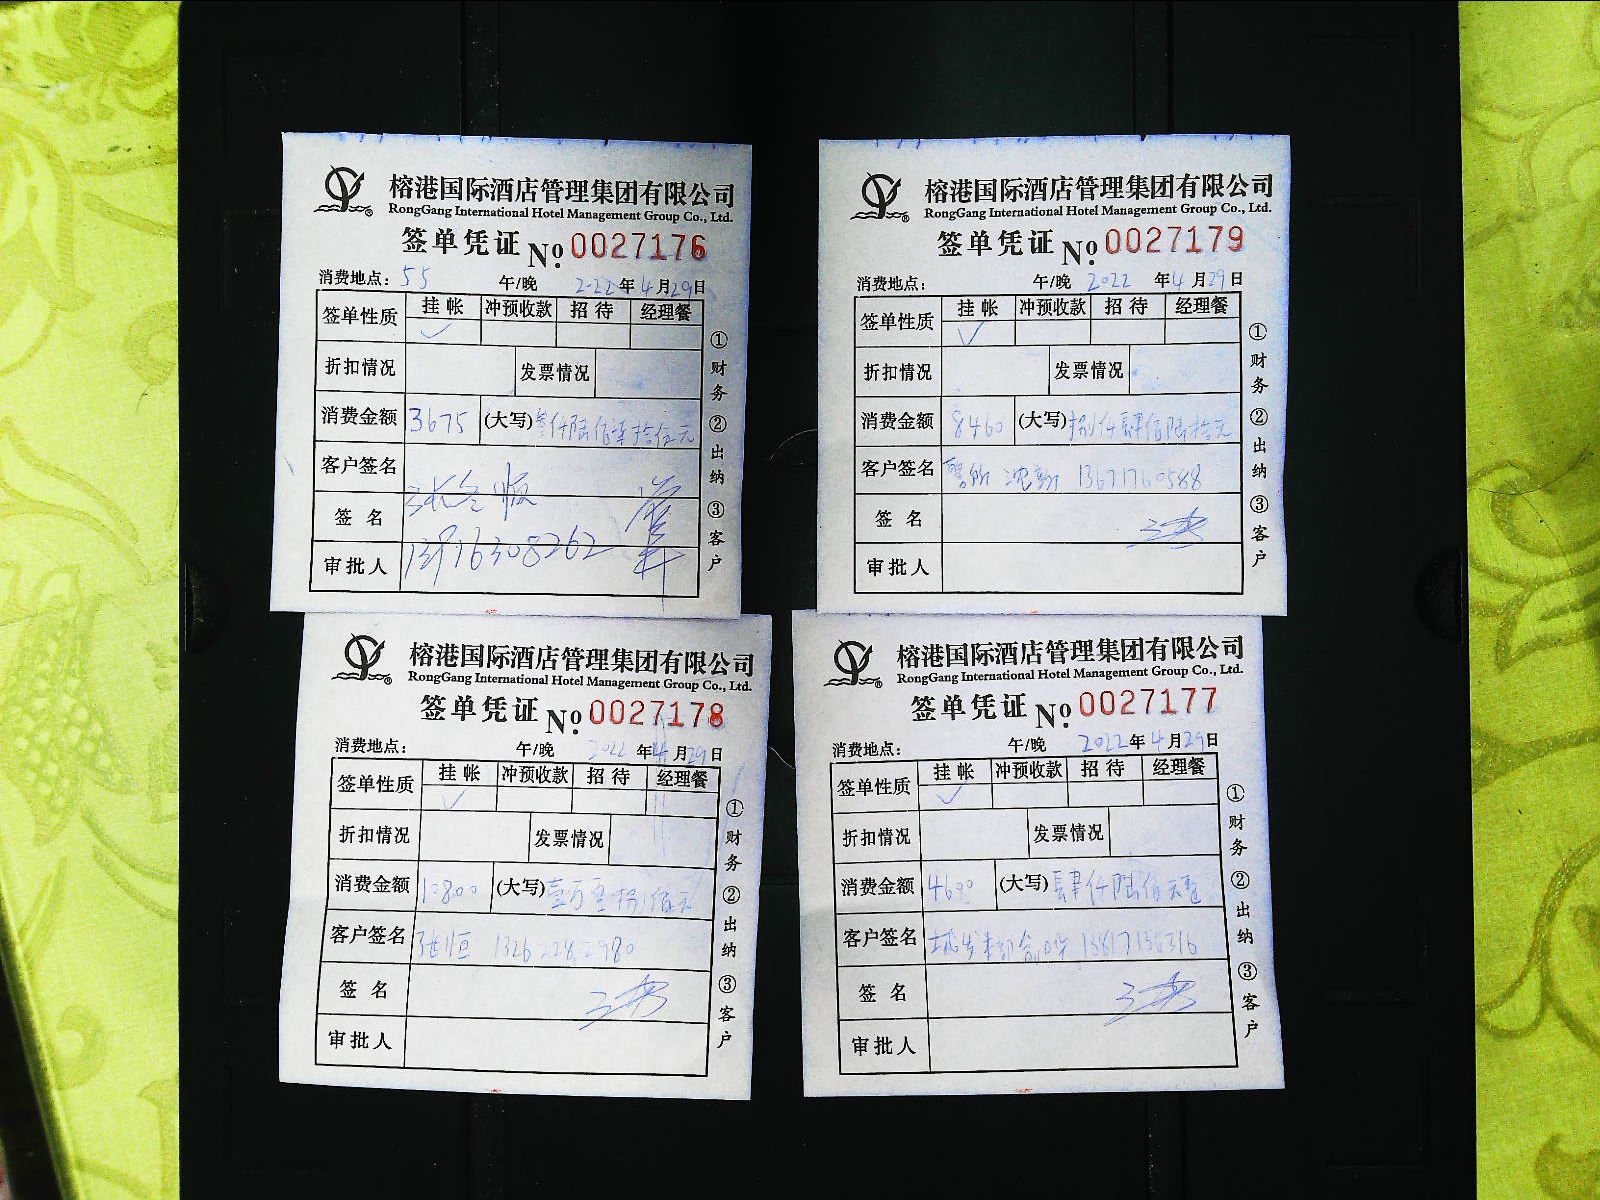 榕港国际酒店管理集团有限公司
RongGang International Hotel Management Group Co., Ltd.
签单凭证 No. 0027176
消费地点: 55 午/晚 2022年4月29日
签单性质 挂帐 冲预收款 招待 经理餐
✓
折扣情况 发票情况
消费金额 3675 (大写) 叁仟陆佰柒拾伍元
客户签名
签名
13916308262
审批人
①财务 ②出纳 ③客户
榕港国际酒店管理集团有限公司
RongGang International Hotel Management Group Co., Ltd.
签单凭证 No. 0027179
消费地点: 午/晚 2022年4月29日
签单性质 挂帐 冲预收款 招待 经理餐
✓
折扣情况 发票情况
消费金额 8460 (大写) 捌仟肆佰陆拾元
客户签名 13671760588
签名
审批人
①财务 ②出纳 ③客户
榕港国际酒店管理集团有限公司
RongGang International Hotel Management Group Co., Ltd.
签单凭证 No. 0027178
消费地点: 午/晚 2022年4月29日
签单性质 挂帐 冲预收款 招待 经理餐
✓
折扣情况 发票情况
消费金额 10800 (大写) 壹万零捌佰元
客户签名 张恒 13262282980
签名
审批人
①财务 ②出纳 ③客户
榕港国际酒店管理集团有限公司
RongGang International Hotel Management Group Co., Ltd.
签单凭证 No. 0027177
消费地点: 午/晚 2022年4月29日
签单性质 挂帐 冲预收款 招待 经理餐
✓
折扣情况 发票情况
消费金额 4600 (大写) 肆仟陆佰元整
客户签名
签名
审批人
①财务 ②出纳 ③客户